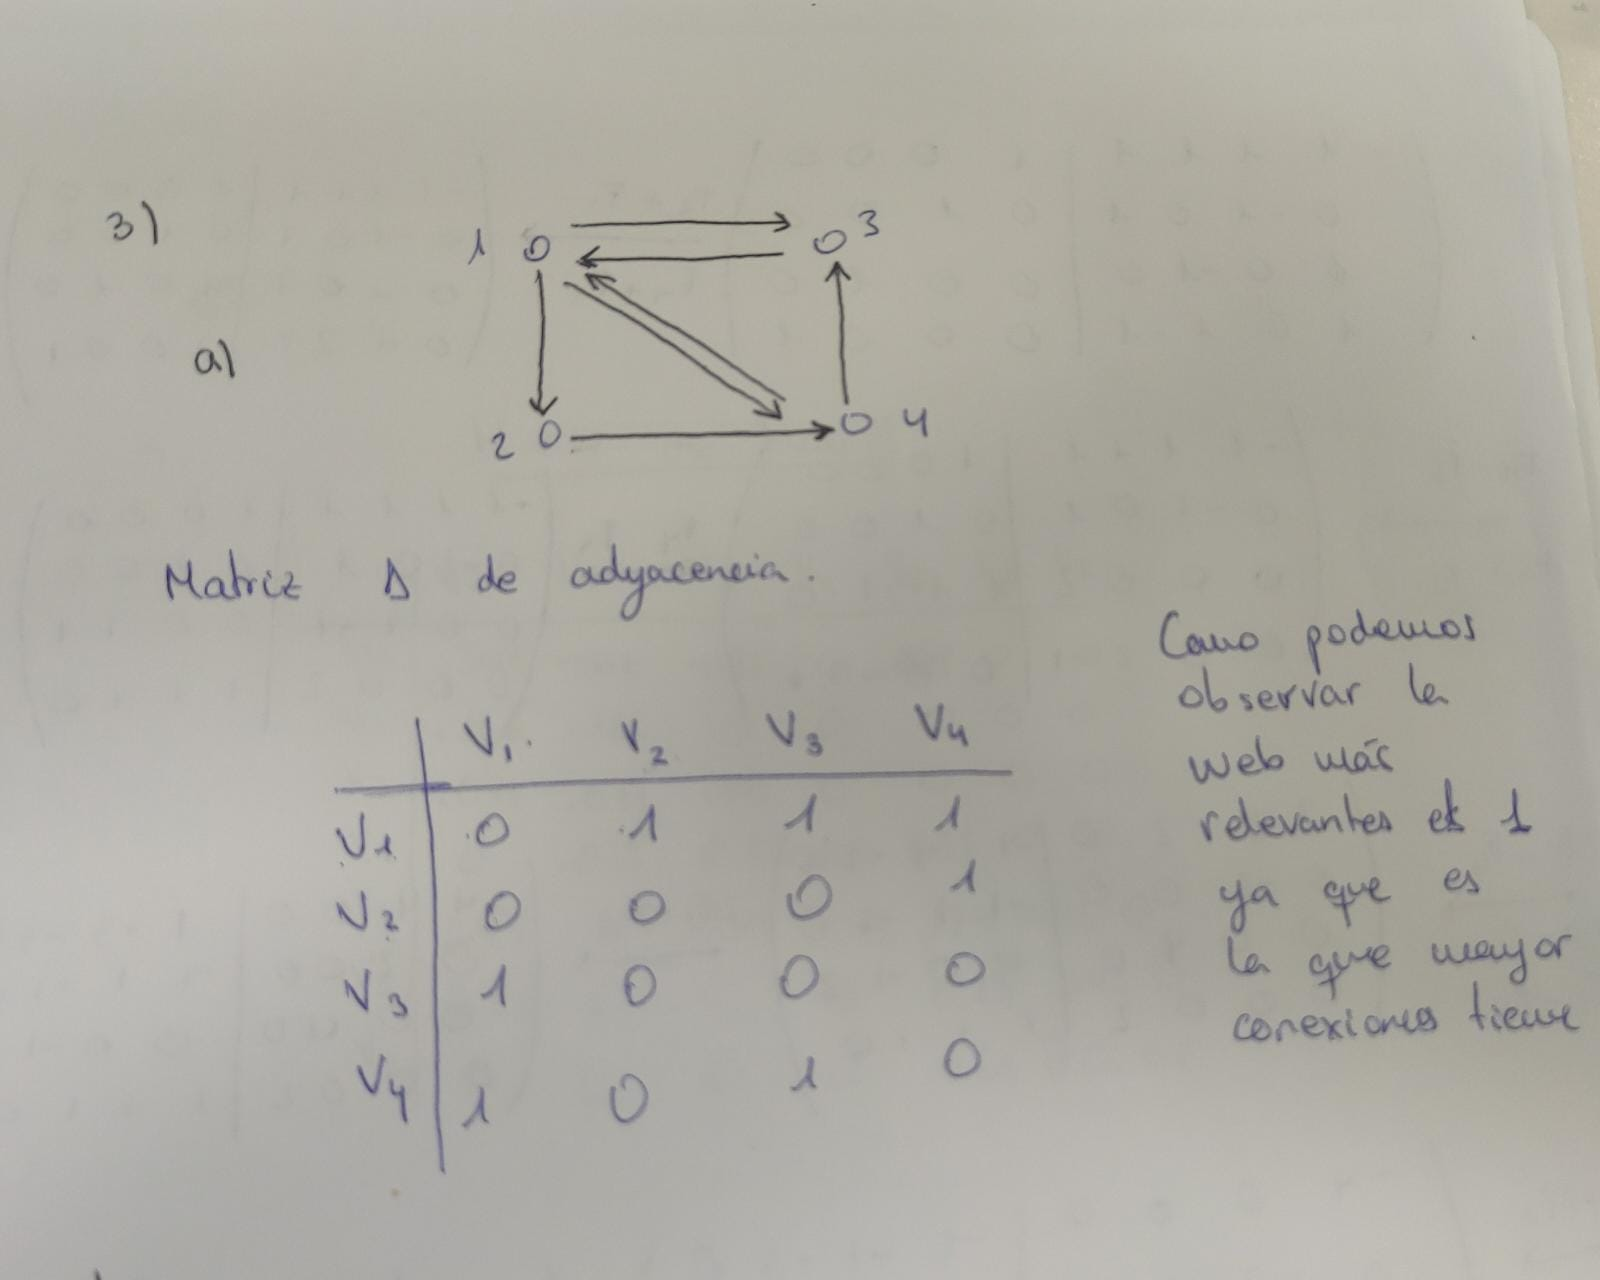 3)
1 3
a)
2 4
Matriz A de adyacencia.
V1 V2 V3 V4
V1 0 1 1 1
V2 0 0 0 1
V3 1 0 0 0
V4 1 0 1 0
Como podemos
observar la
web más
relevantes es 1
ya que es
la que mayor
conexiones tiene